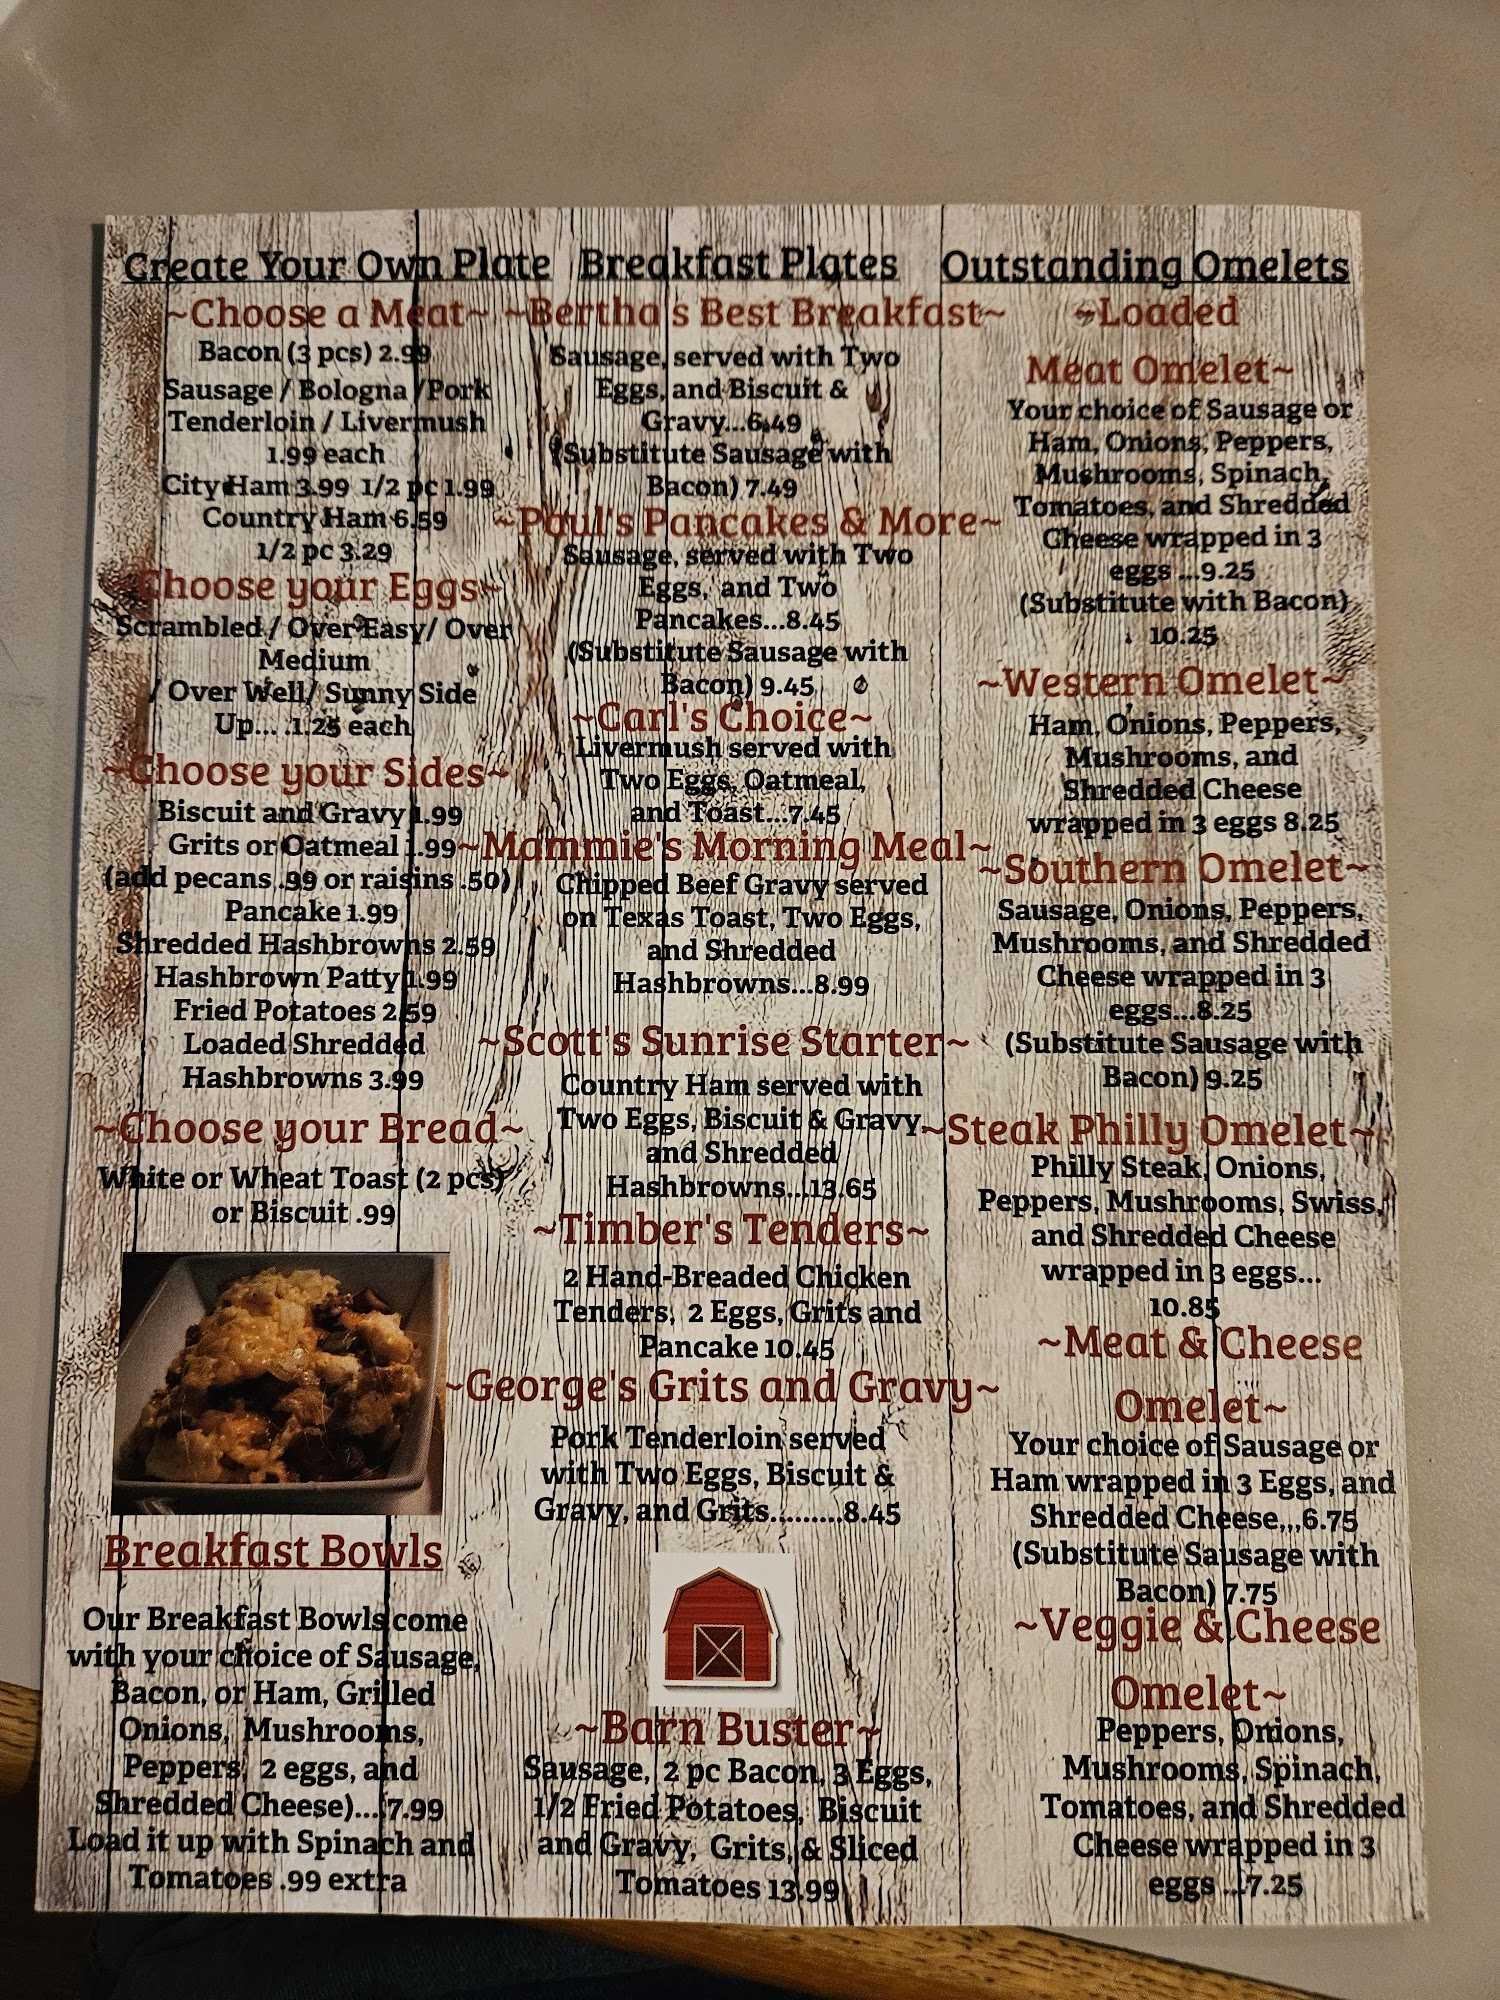 Create Your Own Plate
~Choose a Meat~
Bacon (3 pcs) 2.99
Sausage / Bologna / Pork
Tenderloin / Livermush
1.99 each
City Ham 3.99 1/2 pc 1.99
Country Ham 6.59
1/2 pc 3.29
~Choose your Eggs~
Scrambled / Over Easy/ Over
Medium
/ Over Well/ Sunny Side
Up... .1.25 each
~Choose your Sides~
Biscuit and Gravy 1.99
Grits or Oatmeal 1.99
(add pecans .99 or raisins .50)
Pancake 1.99
Shredded Hashbrowns 2.59
Hashbrown Patty 1.99
Fried Potatoes 2.59
Loaded Shredded
Hashbrowns 3.99
~Choose your Bread~
White or Wheat Toast (2 pcs)
or Biscuit .99
Breakfast Bowls
Our Breakfast Bowls come
with your choice of Sausage,
Bacon, or Ham, Grilled
Onions, Mushrooms,
Peppers, 2 eggs, and
Shredded Cheese)...7.99
Load it up with Spinach and
Tomatoes .99 extra
Breakfast Plates
~Bertha's Best Breakfast~
Sausage, served with Two
Eggs, and Biscuit &
Gravy...6.49
(Substitute Sausage with
Bacon) 7.49
~Paul's Pancakes & More~
Sausage, served with Two
Eggs, and Two
Pancakes...8.45
(Substitute Sausage with
Bacon) 9.45
~Carl's Choice~
Livermush served with
Two Eggs, Oatmeal,
and Toast...7.45
~Mammie's Morning Meal~
Chipped Beef Gravy served
on Texas Toast, Two Eggs,
and Shredded
Hashbrowns...8.99
~Scott's Sunrise Starter~
Country Ham served with
Two Eggs, Biscuit & Gravy
and Shredded
Hashbrowns...13.65
~Timber's Tenders~
2 Hand-Breaded Chicken
Tenders, 2 Eggs, Grits and
Pancake 10.45
~George's Grits and Gravy~
Pork Tenderloin served
with Two Eggs, Biscuit &
Gravy, and Grits.........8.45
~Barn Buster~
Sausage, 2 pc Bacon, 3 Eggs,
1/2 Fried Potatoes, Biscuit
and Gravy, Grits, & Sliced
Tomatoes 13.99
Outstanding Omelets
~Loaded
Meat Omelet~
Your choice of Sausage or
Ham, Onions, Peppers,
Mushrooms, Spinach,
Tomatoes, and Shredded
Cheese wrapped in 3
eggs ...9.25
(Substitute with Bacon)
10.25
~Western Omelet~
Ham, Onions, Peppers,
Mushrooms, and
Shredded Cheese
wrapped in 3 eggs 8.25
~Southern Omelet~
Sausage, Onions, Peppers,
Mushrooms, and Shredded
Cheese wrapped in 3
eggs...8.25
(Substitute Sausage with
Bacon) 9.25
~Steak Philly Omelet~
Philly Steak, Onions,
Peppers, Mushrooms, Swiss,
and Shredded Cheese
wrapped in 3 eggs...
10.85
~Meat & Cheese
Omelet~
Your choice of Sausage or
Ham wrapped in 3 Eggs, and
Shredded Cheese,,,6.75
(Substitute Sausage with
Bacon) 7.75
~Veggie & Cheese
Omelet~
Peppers, Onions,
Mushrooms, Spinach,
Tomatoes, and Shredded
Cheese wrapped in 3
eggs ...7.25